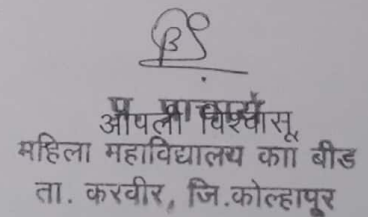 आपला विश्वासू,
महिला महाविद्यालय काा बीड
ता. करवीर, जि.कोल्हापूर